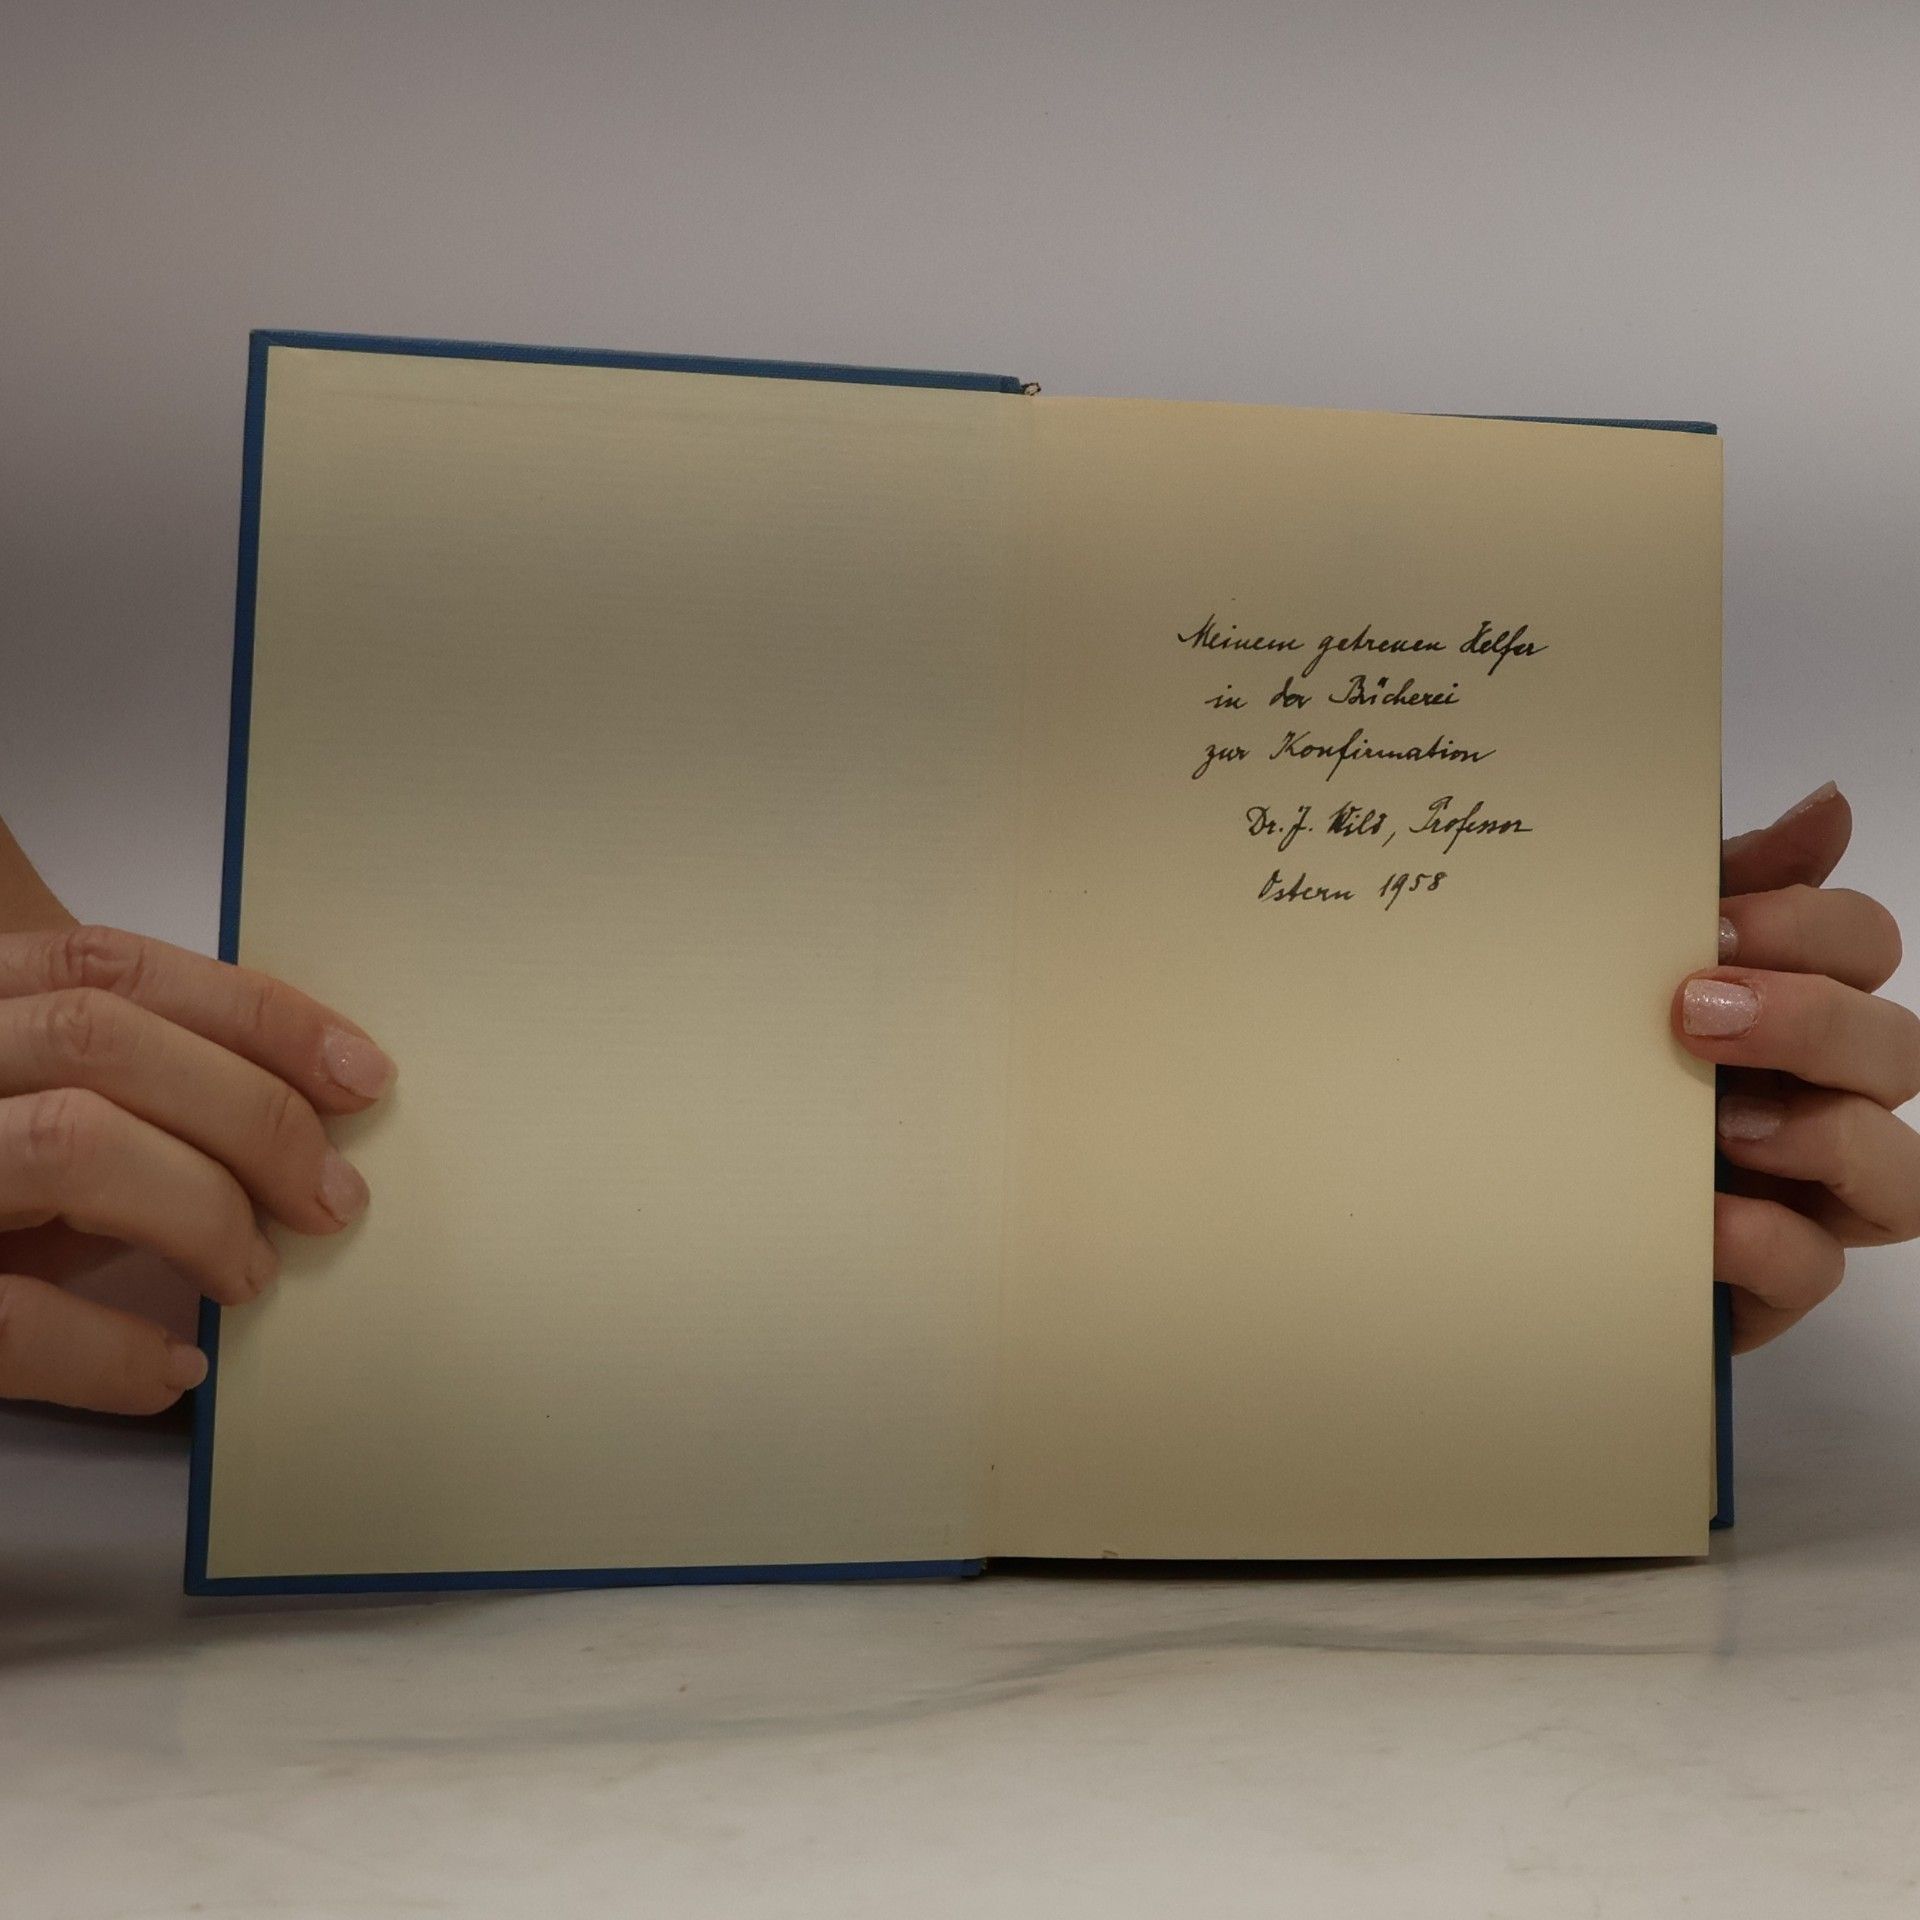 Meinem getreuen Helfer
in der Bücherei
zur Konfirmation
Dr. J. Wild, Professor
Ostern 1958